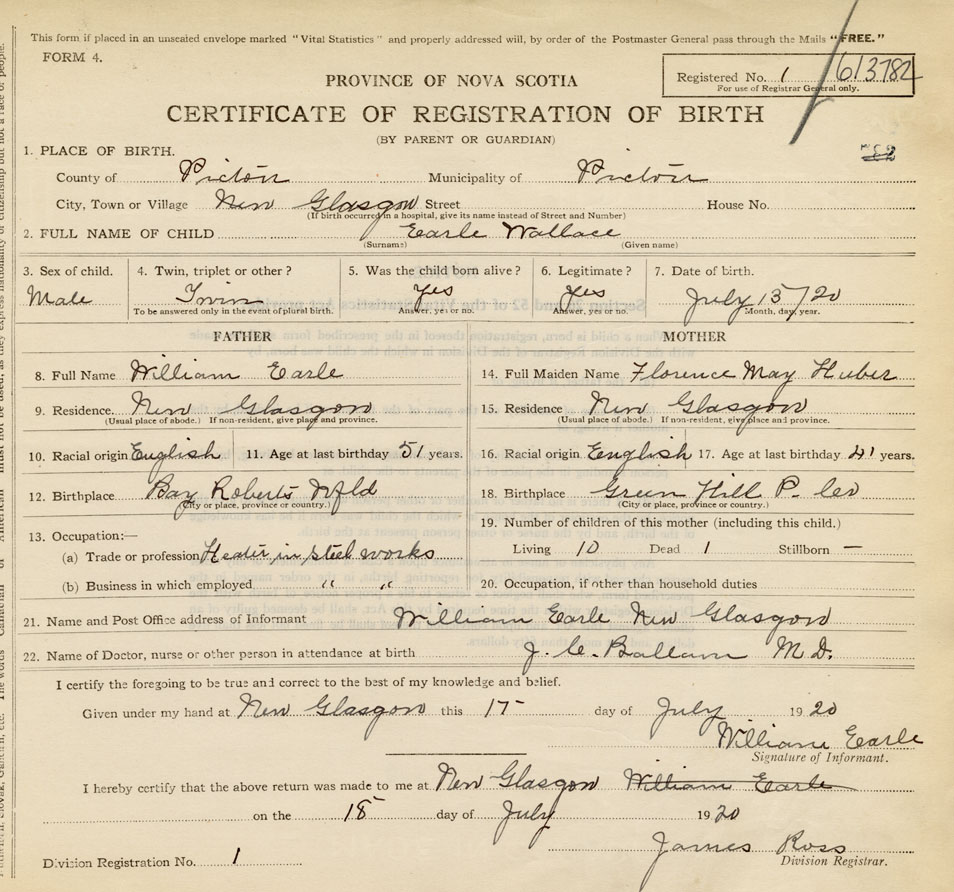 This form if placed in an unsealed envelope marked "Vital Statistics" and properly addressed will, by order of the Postmaster General pass through the Mails "FREE."
FORM 4.
Registered No. 1 613782
For use of Registrar General only.
PROVINCE OF NOVA SCOTIA
CERTIFICATE OF REGISTRATION OF BIRTH
(BY PARENT OR GUARDIAN)
1. PLACE OF BIRTH.
County of Pictou Municipality of Pictou
City, Town or Village New Glasgow Street House No.
(If birth occurred in a hospital, give its name instead of Street and Number)
2. FULL NAME OF CHILD Earle Wallace
(Surname) (Given name)
3. Sex of child. 4. Twin, triplet or other? 5. Was the child born alive? 6. Legitimate? 7. Date of birth.
Male Twin Yes Yes July 15/20
To be answered only in the event of plural birth. Answer, yes or no. Answer, yes or no. Month, day, year.
FATHER MOTHER
8. Full Name William Earle 14. Full Maiden Name Florence May Huber
9. Residence. New Glasgow 15. Residence New Glasgow
(Usual place of abode.) If non-resident, give place and province. (Usual place of abode.) If non-resident, give place and province.
10. Racial origin English 11. Age at last birthday 51 years. 16. Racial origin English 17. Age at last birthday 41 years.
12. Birthplace Bay Roberts Nfld 18. Birthplace Green Hill P. Co
(City or place, province or country.) (City or place, province or country.)
13. Occupation:— 19. Number of children of this mother (including this child.)
(a) Trade or profession Heater in steel works Living 10 Dead 1 Stillborn —
(b) Business in which employed " " 20. Occupation, if other than household duties
21. Name and Post Office address of Informant William Earle New Glasgow
22. Name of Doctor, nurse or other person in attendance at birth J. C. Ballam M.D.
I certify the foregoing to be true and correct to the best of my knowledge and belief.
Given under my hand at New Glasgow this 17 day of July 1920
William Earle
Signature of Informant.
I hereby certify that the above return was made to me at New Glasgow William Earle
on the 18 day of July 1920
James Ross
Division Registrar.
Division Registration No. 1